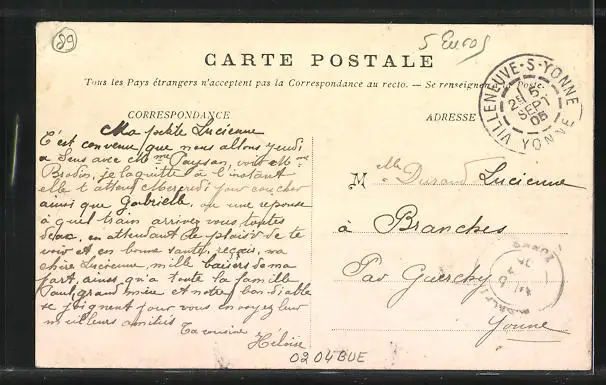 89
5 Euros
CARTE POSTALE
Tous les Pays étrangers n'acceptent pas la Correspondance au recto. — Se renseigner Poste.
CORRESPONDANCE
ADRESSE
VILLENEUVE-S-YONNE
SEPT
05
YONNE
Ma petite Lucienne
C'est convenu que nous allons jeudi
a Sens avec Mme Paysan, voir Mme
Brodin, je la quitte à l'instant
elle t'attend Mercredi pour coucher
ainsi que Gabrielle, une reponse
à quel train arrivez vous toutes
deux, en attendant le plaisir de te
voir et en bonne santé, reçois, ma
chère Lucienne, mille baisers de ma
part, ainsi qu'a toute ta famille
Paul, grand mère et notre bon diable
se joignent pour vous envoyez leur
meilleurs amitiés
Ta cousine
Heloïse
Mlle Durand Lucienne
à Branches
Par Guerchy
Yonne
0204BUE